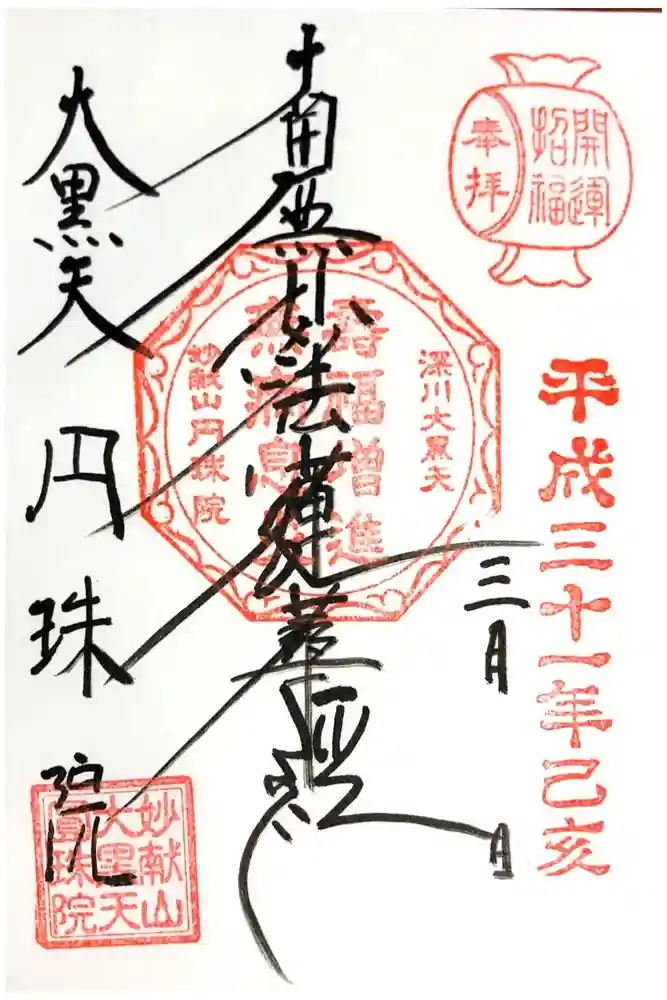 奉拝
開運
招福
平成三十一年己亥
三月 日
深川大黒天
壽福増進
無病息災
妙献山円珠院
南無妙法蓮華経
大黒天
円珠院
妙献山
大黒天
圓珠院